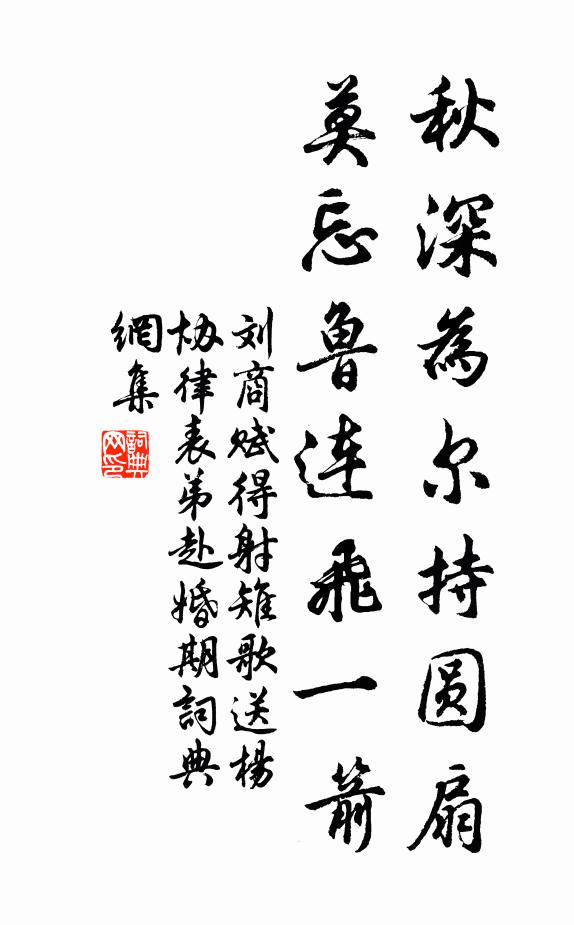 秋深為尔持圆扇
莫忘魯連飛一箭
刘商赋得射雉歌送楊
协律表弟赴婚期詞典
網集
詞典
网印